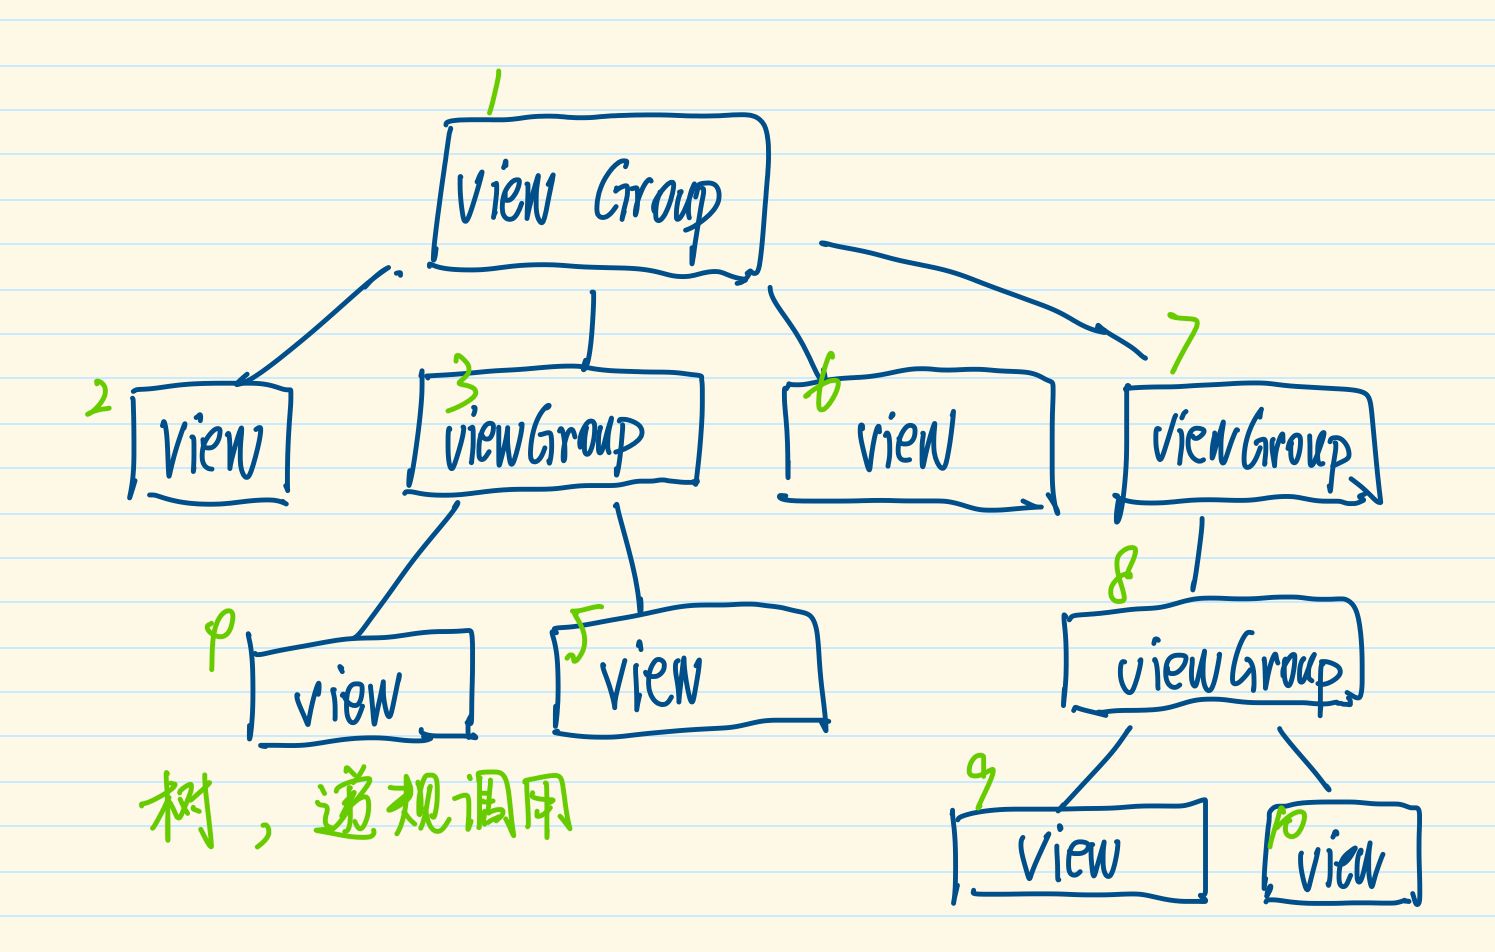 1
View Group
2
View
3
viewGroup
6
view
7
ViewGroup
4
view
5
view
8
viewGroup
树，递规调用
9
view
10
view